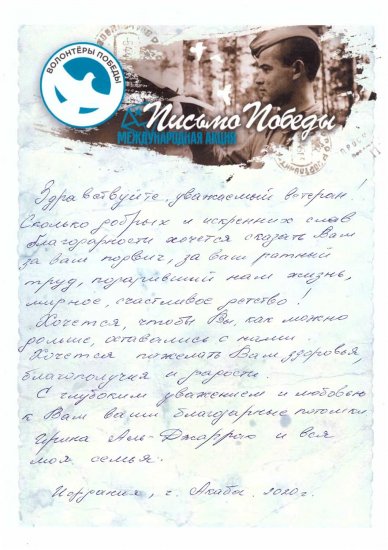 ВОЛОНТЁРЫ ПОБЕДЫ
Письмо Победы
МЕЖДУНАРОДНАЯ АКЦИЯ
Здравствуйте, уважаемый ветеран!
Сколько добрых и искренних слов
благодарности хочется сказать Вам
за ваш подвиг, за ваш ратный
труд, подаривший нам жизнь,
мирное, счастливое детство!
Хочется, чтобы Вы, как можно
дольше, оставались с нами
Хочется пожелать Вам здоровья,
благополучия и радости.
С глубоким уважением и любовью
к Вам ваши благодарные потомки
Ирина Аль-Джаррую и вся
моя семья.
Иордания, г. Акаба, 2020 г.